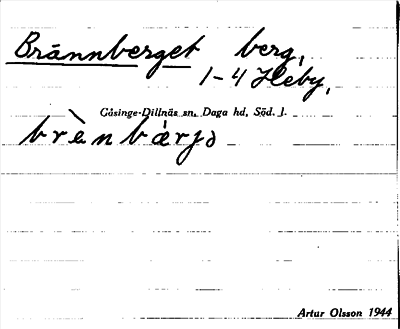 Brännberget berg,
1-4 Heby,
Gåsinge-Dillnäs sn, Daga hd, Söd. l.
brènbàrjə
Artur Olsson 1944